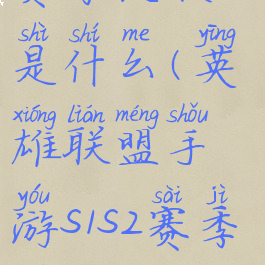 shì shí me yīng
是什么(英
xióng lián méng shǒu
雄联盟手
yóu sài jì
游S1S2赛季